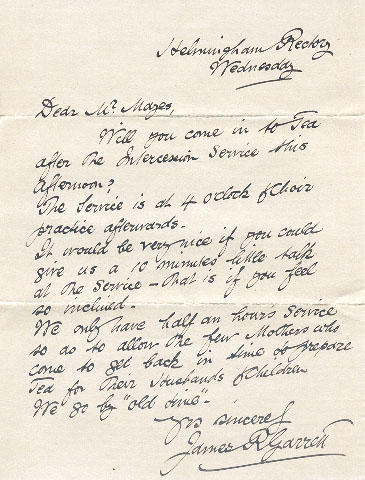 Helmingham Rectory
Wednesday
Dear Mr. Mayes,
Will you come in to Tea
after the Intercession Service this
afternoon?
The Service is at 4 o'clock & Choir
practice afterwards.
It would be very nice if you could
give us a 10 minutes little talk
at the Service – that is if you feel
so inclined.
We only have half an hour's Service
so as to allow the few Mothers who
come to get back in time to prepare
Tea for their Husbands & Children
We go by "old time".
Yrs sincerely
James R Garrett